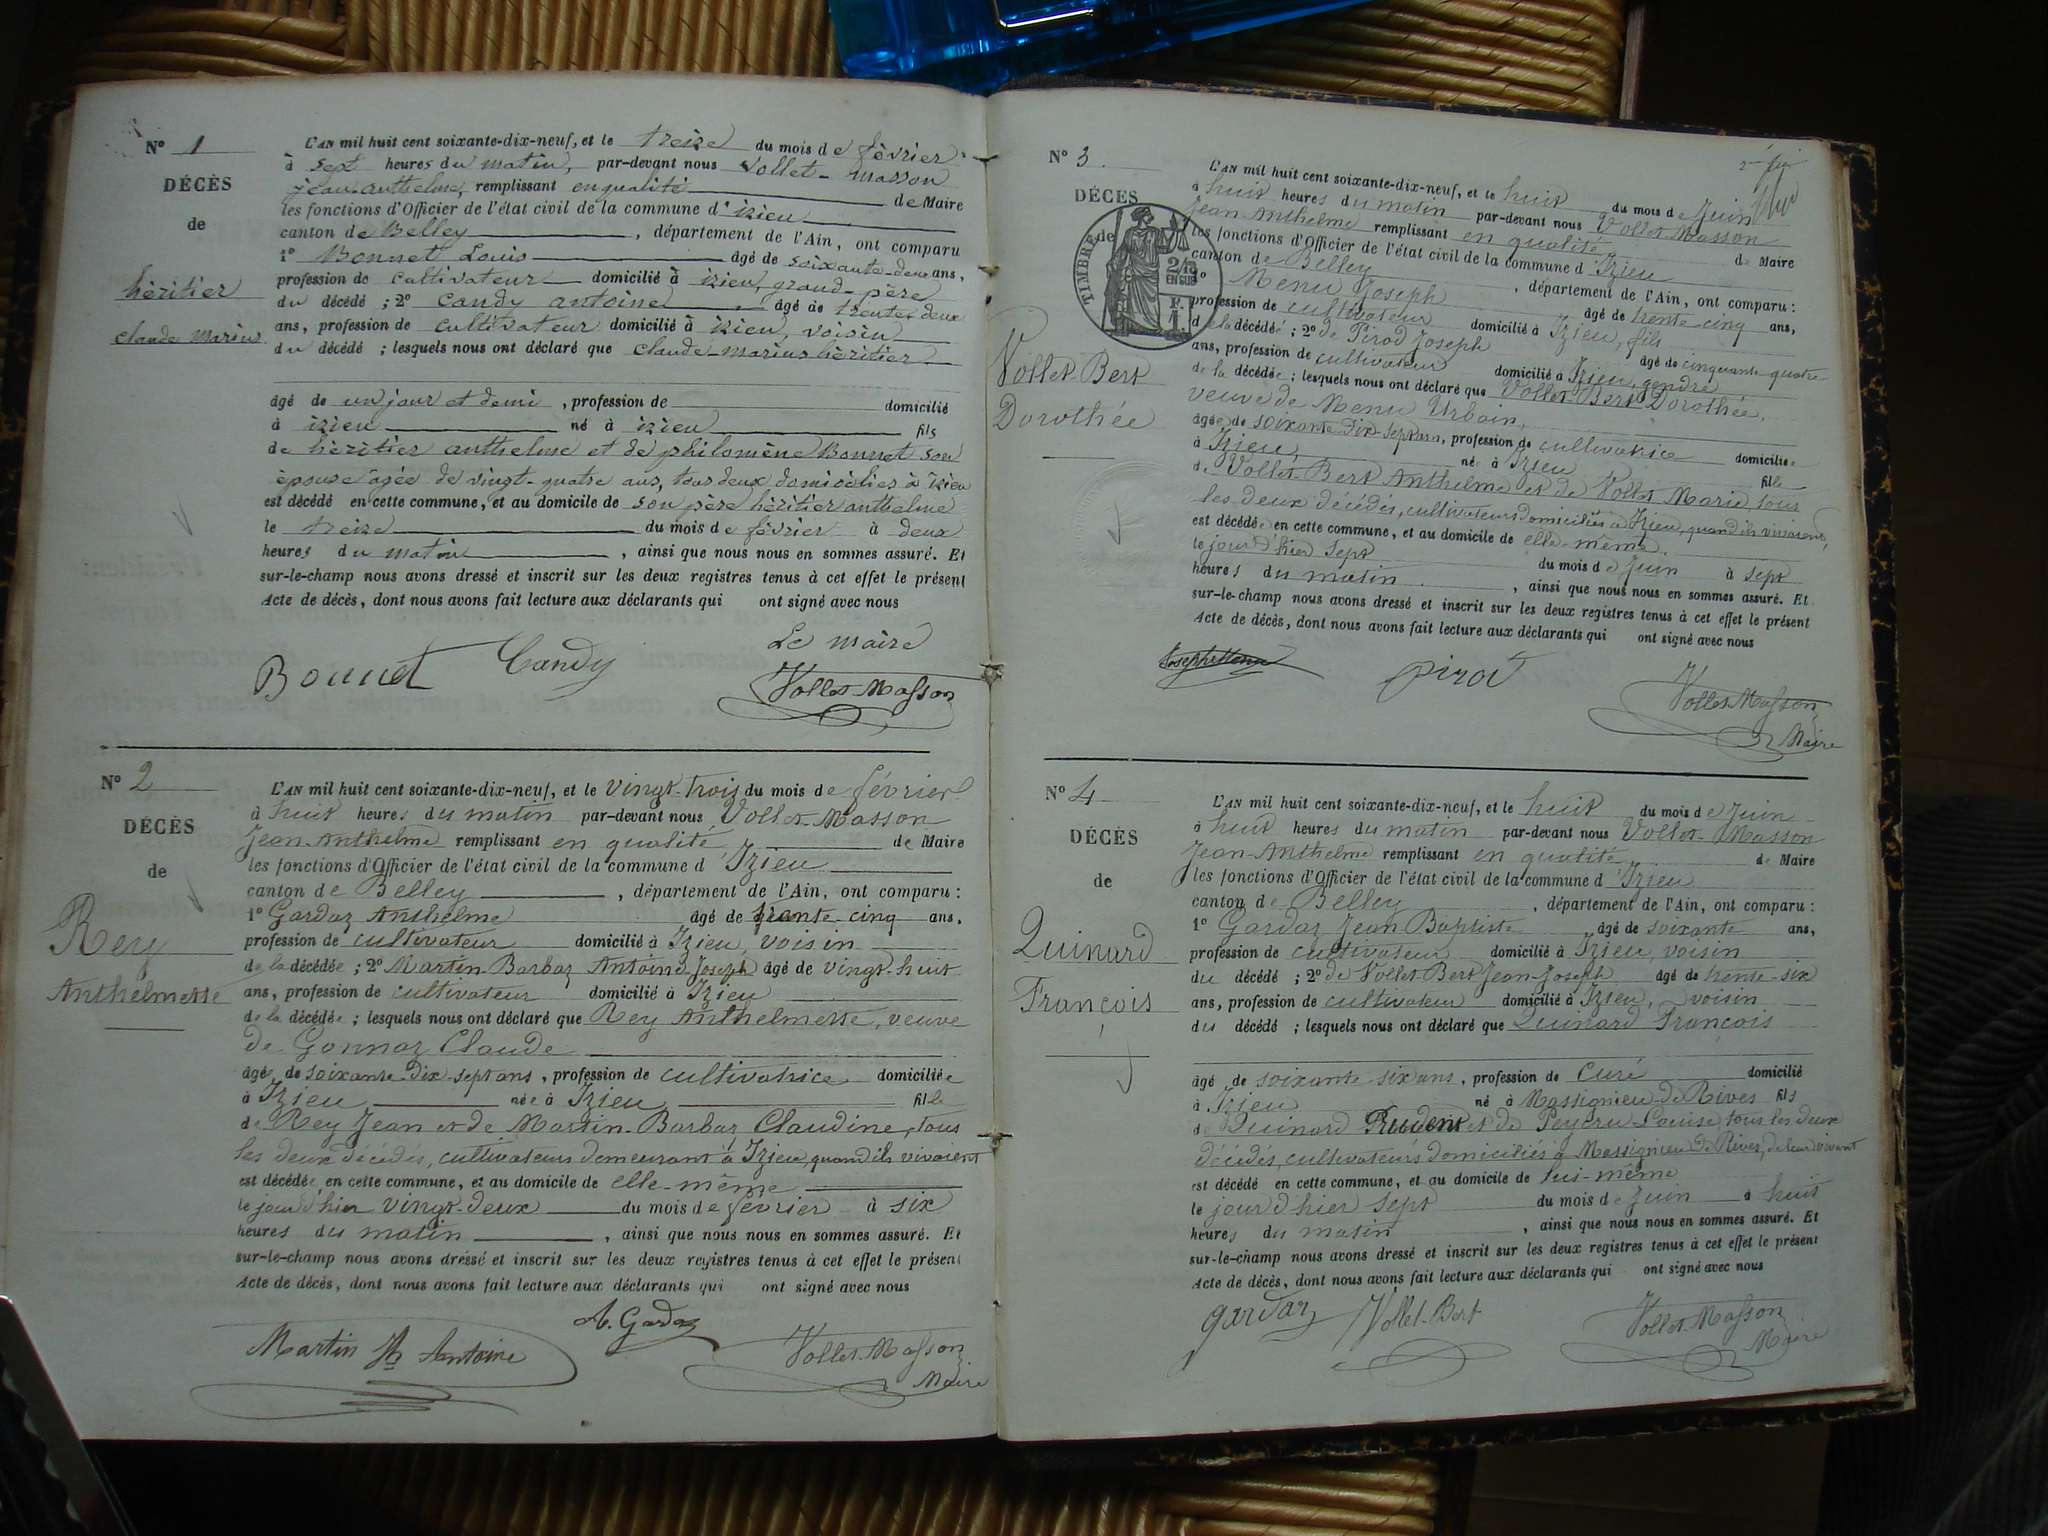 N° 1
DÉCÈS
de
héritier
claude Marius
L'AN mil huit cent soixante-dix-neuf, et le treize du mois de février
à sept heures du matin, par-devant nous Vollet-Masson
jean anthelme, remplissant en qualité de Maire
les fonctions d'Officier de l'état civil de la commune d'izieu
canton de Belley, département de l'Ain, ont comparu
1° Bonnet Louis âgé de soixante-deux ans,
profession de cultivateur domicilié à izieu, grand-père
du décédé ; 2° Candy antoine, âgé de trente deux
ans, profession de cultivateur domicilié à izieu, voisin
du décédé ; lesquels nous ont déclaré que claude-marius héritier
âgé de un jour et demi, profession de domicilié
à izieu né à izieu fils
de héritier anthelme et de philomène Bonnet son
épouse âgée de vingt-quatre ans, tous deux domiciliés à izieu
est décédé en cette commune, et au domicile de son père héritier anthelme
le treize du mois de février à deux
heures du matin, ainsi que nous nous en sommes assuré. Et
sur-le-champ nous avons dressé et inscrit sur les deux registres tenus à cet effet le présent
Acte de décès, dont nous avons fait lecture aux déclarants qui ont signé avec nous
Le maire
Bonnet Candy Vollet-Masson
N° 2
DÉCÈS
de
Rey
Anthelmette
L'AN mil huit cent soixante-dix-neuf, et le vingt-trois du mois de février
à huit heures du matin par-devant nous Vollet-Masson
Jean-Anthelme remplissant en qualité de Maire
les fonctions d'Officier de l'état civil de la commune d'Izieu
canton de Belley, département de l'Ain, ont comparu :
1° Gardaz Anthelme âgé de trente-cinq ans,
profession de cultivateur domicilié à Izieu, voisin
de la décédée ; 2° Martin-Barbaz Antoine Joseph âgé de vingt-huit
ans, profession de cultivateur domicilié à Izieu
de la décédée ; lesquels nous ont déclaré que Rey Anthelmette, veuve
de Gonnaz Claude
âgée de soixante-dix-sept ans, profession de cultivatrice domiciliée
à Izieu née à Izieu fille
de Rey Jean et de Martin-Barbaz Claudine, tous
les deux décédés, cultivateurs demeurant à Izieu, quand ils vivaient
est décédée en cette commune, et au domicile de elle-même
le jour d'hier vingt-deux du mois de février à six
heures du matin, ainsi que nous nous en sommes assuré. Et
sur-le-champ nous avons dressé et inscrit sur les deux registres tenus à cet effet le présent
Acte de décès, dont nous avons fait lecture aux déclarants qui ont signé avec nous
A. Gardaz
Martin Antoine Vollet-Masson
Maire
N° 3
DÉCÈS
de
TIMBRE
2/10 EN SUS
F. 1.
Vollet-Bert
Dorothée
L'AN mil huit cent soixante-dix-neuf, et le huit du mois de Juin
à huit heures du matin par-devant nous Vollet-Masson
Jean-Anthelme remplissant en qualité de Maire
les fonctions d'Officier de l'état civil de la commune d'Izieu
canton de Belley, département de l'Ain, ont comparu :
1° Menu Joseph âgé de trente-cinq ans,
profession de cultivateur domicilié à Izieu, fils
de la décédée ; 2° de Pirod Joseph âgé de cinquante-quatre
ans, profession de cultivateur domicilié à Izieu, gendre
de la décédée ; lesquels nous ont déclaré que Vollet-Bert Dorothée,
veuve de Menu Urbain,
âgée de soixante-dix-sept ans, profession de cultivatrice domiciliée
à Izieu, née à Izieu fille
de Vollet-Bert Anthelme et de Vollet Marie, tous
les deux décédés, cultivateurs domiciliés à Izieu, quand ils vivaient,
est décédée en cette commune, et au domicile de elle-même.
le jour d'hier sept du mois de Juin à sept
heures du matin, ainsi que nous nous en sommes assuré. Et
sur-le-champ nous avons dressé et inscrit sur les deux registres tenus à cet effet le présent
Acte de décès, dont nous avons fait lecture aux déclarants qui ont signé avec nous
Joseph Menu Pirod Vollet-Masson
Maire
N° 4
DÉCÈS
de
Quinard
François
L'AN mil huit cent soixante-dix-neuf, et le huit du mois de Juin
à huit heures du matin par-devant nous Vollet-Masson
Jean-Anthelme remplissant en qualité de Maire
les fonctions d'Officier de l'état civil de la commune d'Izieu
canton de Belley, département de l'Ain, ont comparu :
1° Gardaz Jean Baptiste âgé de soixante ans,
profession de cultivateur domicilié à Izieu, voisin
du décédé ; 2° de Vollet-Bert Jean-Joseph âgé de trente-six
ans, profession de cultivateur domicilié à Izieu, voisin
du décédé ; lesquels nous ont déclaré que Quinard François
âgé de soixante six ans, profession de curé domicilié
à Izieu né à Massignieu-de-Rives fils
de Quinard Prudent et de Peycru Louise, tous les deux
décédés, cultivateurs domiciliés à Massignieu de Rives, de leur vivant
est décédé en cette commune, et au domicile de lui-même
le jour d'hier sept du mois de Juin à huit
heures du matin, ainsi que nous nous en sommes assuré. Et
sur-le-champ nous avons dressé et inscrit sur les deux registres tenus à cet effet le présent
Acte de décès, dont nous avons fait lecture aux déclarants qui ont signé avec nous
gardaz Vollet-Bert Vollet-Masson
Maire